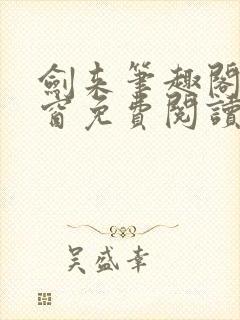 劍来筆趣閣
窗免費閱讀
吴盛幸